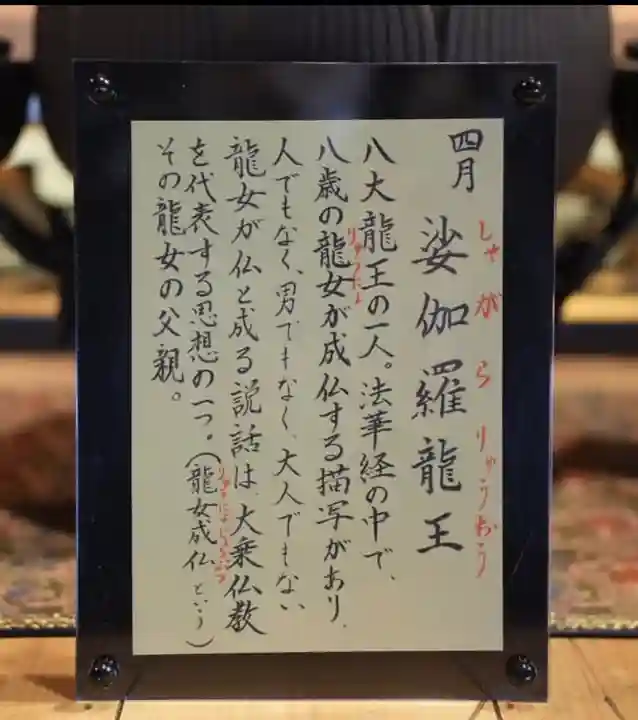 四月
娑伽羅龍王
しゃがらりゅうおう
八大龍王の一人。法華経の中で、
八歳の龍女が成仏する描写があり、
りゅうにょ
人でもなく、男でもなく、大人でもない
龍女が仏と成る説話は、大乗仏教
を代表する思想の一つ。(龍女成仏という)
りゅうにょじょうぶつ
その龍女の父親。